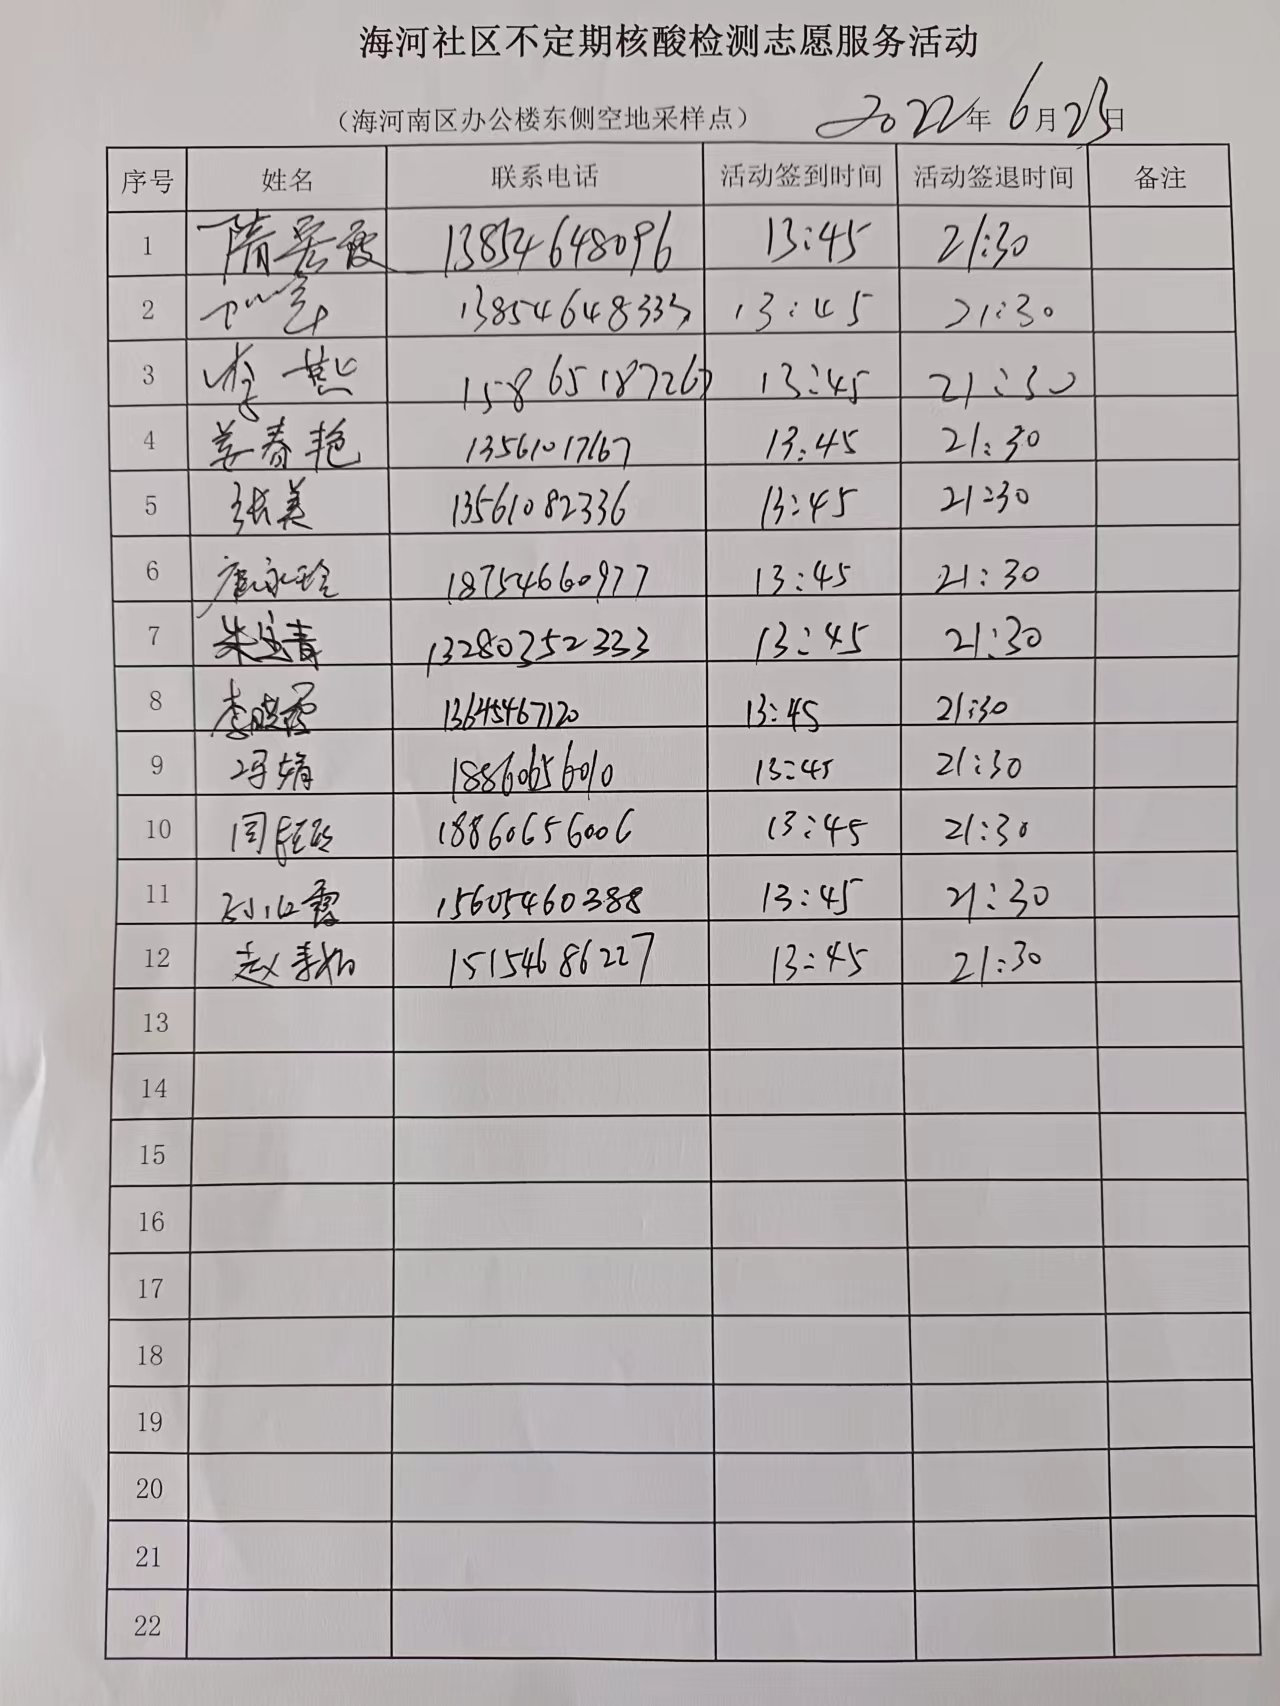 海河社区不定期核酸检测志愿服务活动
（海河南区办公楼东侧空地采样点） 2022年6月23日
序号 姓名 联系电话 活动签到时间 活动签退时间 备注
1 13854648096 13:45 21:30
2 13854648333 13:45 21:30
3 李燕 15865187267 13:45 21:30
4 姜春艳 13561017167 13:45 21:30
5 张美 13561082336 13:45 21:30
6 18754660977 13:45 21:30
7 13280352333 13:45 21:30
8 李晓霞 13645467120 13:45 21:30
9 冯娟 18860656010 13:45 21:30
10 18860656006 13:45 21:30
11 15605460388 13:45 21:30
12 15154686227 13:45 21:30
13
14
15
16
17
18
19
20
21
22